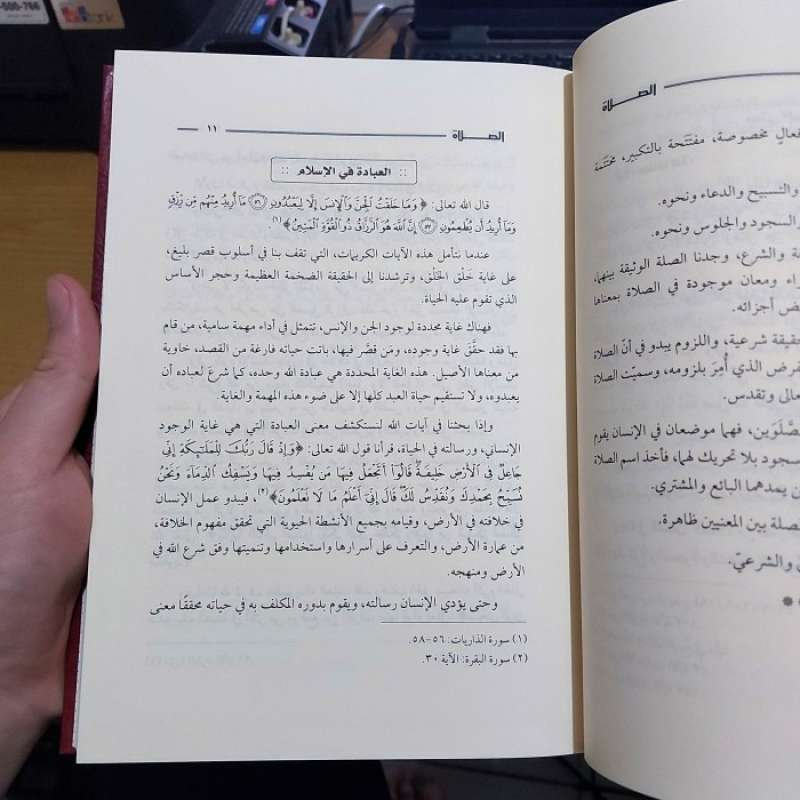 الصلاة
فعالٍ مخصوصة، مفتتحة بالتكبير، مختتمة
والتسبيح والدعاء ونحوه.
والسجود والجلوس ونحوه.
ة والشرع، وجدنا الصلة الوثيقة بينهما،
اء ومعان موجودة في الصلاة بمعناها
ض أجزائه.
حقيقة شرعية، واللزوم يبدو في أنّ الصلاة
لفرض الذي أُمِرَ بلزومه، وسميّت الصلاة
عالى وتقدس.
صَّلَوَين، فهما موضعان في الإنسان يقوم
سجود بلا تحريك لهما، فأخذ اسم الصلاة
ن يمدهما البائع والمشتري.
لصلة بين المعنيين ظاهرة.
والشرعيّ.
الصلاة ١١
:: العبادة في الإسلام ::
قال الله تعالى: ﴿ وَمَا خَلَقْتُ الْجِنَّ وَالْإِنسَ إِلَّا لِيَعْبُدُونِ ٥٦ مَا أُرِيدُ مِنْهُم مِّن رِّزْقٍ
وَمَا أُرِيدُ أَن يُطْعِمُونِ ٥٧ إِنَّ اللَّهَ هُوَ الرَّزَّاقُ ذُو الْقُوَّةِ الْمَتِينُ ﴾(١).
عندما نتأمل هذه الآيات الكريمات، التي تقف بنا في أسلوب قصر بليغ،
على غاية خَلْق الخَلْق، وترشدنا إلى الحقيقة الضخمة العظيمة وحجر الأساس
الذي تقوم عليه الحياة.
فهناك غاية محددة لوجود الجن والإنس، تتمثل في أداء مهمة سامية، من قام
بها فقد حقَّقَ غاية وجوده، ومَن قصَّر فيها، باتت حياته فارغة من القصد، خاوية
من معناها الأصيل. هذه الغاية المحددة هي عبادة الله وحده، كما شرعَ لعباده أن
يعبدوه، ولا تستقيم حياة العبد كلها إلا على ضوء هذه المهمة والغاية.
وإذا بحثنا في آيات الله لنستكشف معنى العبادة التي هي غاية الوجود
الإنساني، ورسالته في الحياة، قرأنا قول الله تعالى: ﴿وَإِذْ قَالَ رَبُّكَ لِلْمَلَائِكَةِ إِنِّي
جَاعِلٌ فِي الْأَرْضِ خَلِيفَةً قَالُوا أَتَجْعَلُ فِيهَا مَن يُفْسِدُ فِيهَا وَيَسْفِكُ الدِّمَاءَ وَنَحْنُ
نُسَبِّحُ بِحَمْدِكَ وَنُقَدِّسُ لَكَ قَالَ إِنِّي أَعْلَمُ مَا لَا تَعْلَمُونَ﴾(٢)، فيبدو عمل الإنسان
في خلافته في الأرض، وقيامه بجميع الأنشطة الحيوية التي تحقق مفهوم الخلافة،
من عمارة الأرض، والتعرف على أسرارها واستخدامها وتنميتها وفق شرع الله في
الأرض ومنهجه.
وحتى يؤدي الإنسان رسالته، ويقوم بدوره المكلف به في حياته محققًا معنى
(١) سورة الذاريات: ٥٦-٥٨.
(٢) سورة البقرة: الآية ٣٠.